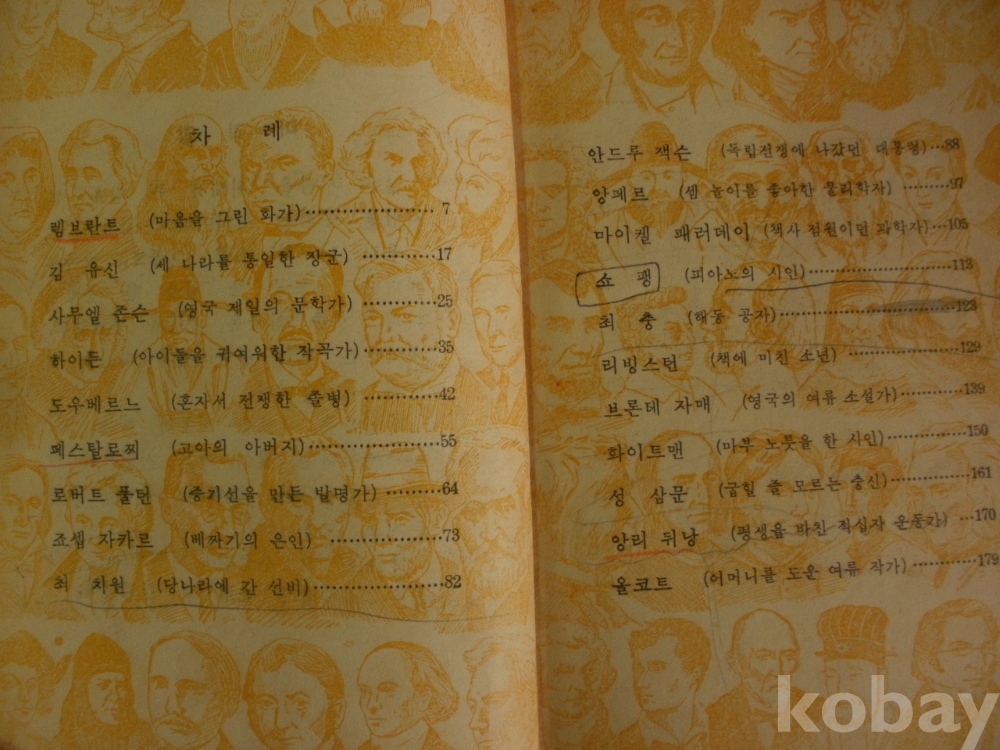 차 례
렘브란트 (마음을 그린 화가)················· 7
김 유신 (세 나라를 통일한 장군) ··········17
사무엘 존슨 (영국 제일의 문학가) ··········25
하이든 (아이들을 귀여워한 작곡가)··········35
도우베르느 (혼자서 전쟁한 졸병) ··········42
페스탈로찌 (고아의 아버지)·················55
로버트 풀턴 (증기선을 만든 발명가) ·········64
죠셉 자카르 (베짜기의 은인) ···············73
최 치원 (당나라에 간 선비)·················82
안드루 잭슨 (독립전쟁에 나갔던 대통령)···88
앙페르 (셈 놀이를 좋아한 물리학자) ········97
마이켈 패러데이 (책사 점원이던 과학자)···105
쇼 팽 (피아노의 시인)····················113
최 충 (해동 공자)·······················123
리빙스턴 (책에 미친 소년) ················129
브론테 자매 (영국의 여류 소설가)··········139
화이트맨 (마부 노릇을 한 시인)············150
성 삼문 (굽힐 줄 모르는 충신)············161
앙리 뒤낭 (평생을 바친 적십자 운동가) ···170
올코트 (어머니를 도운 여류 작가)·········179
kobay